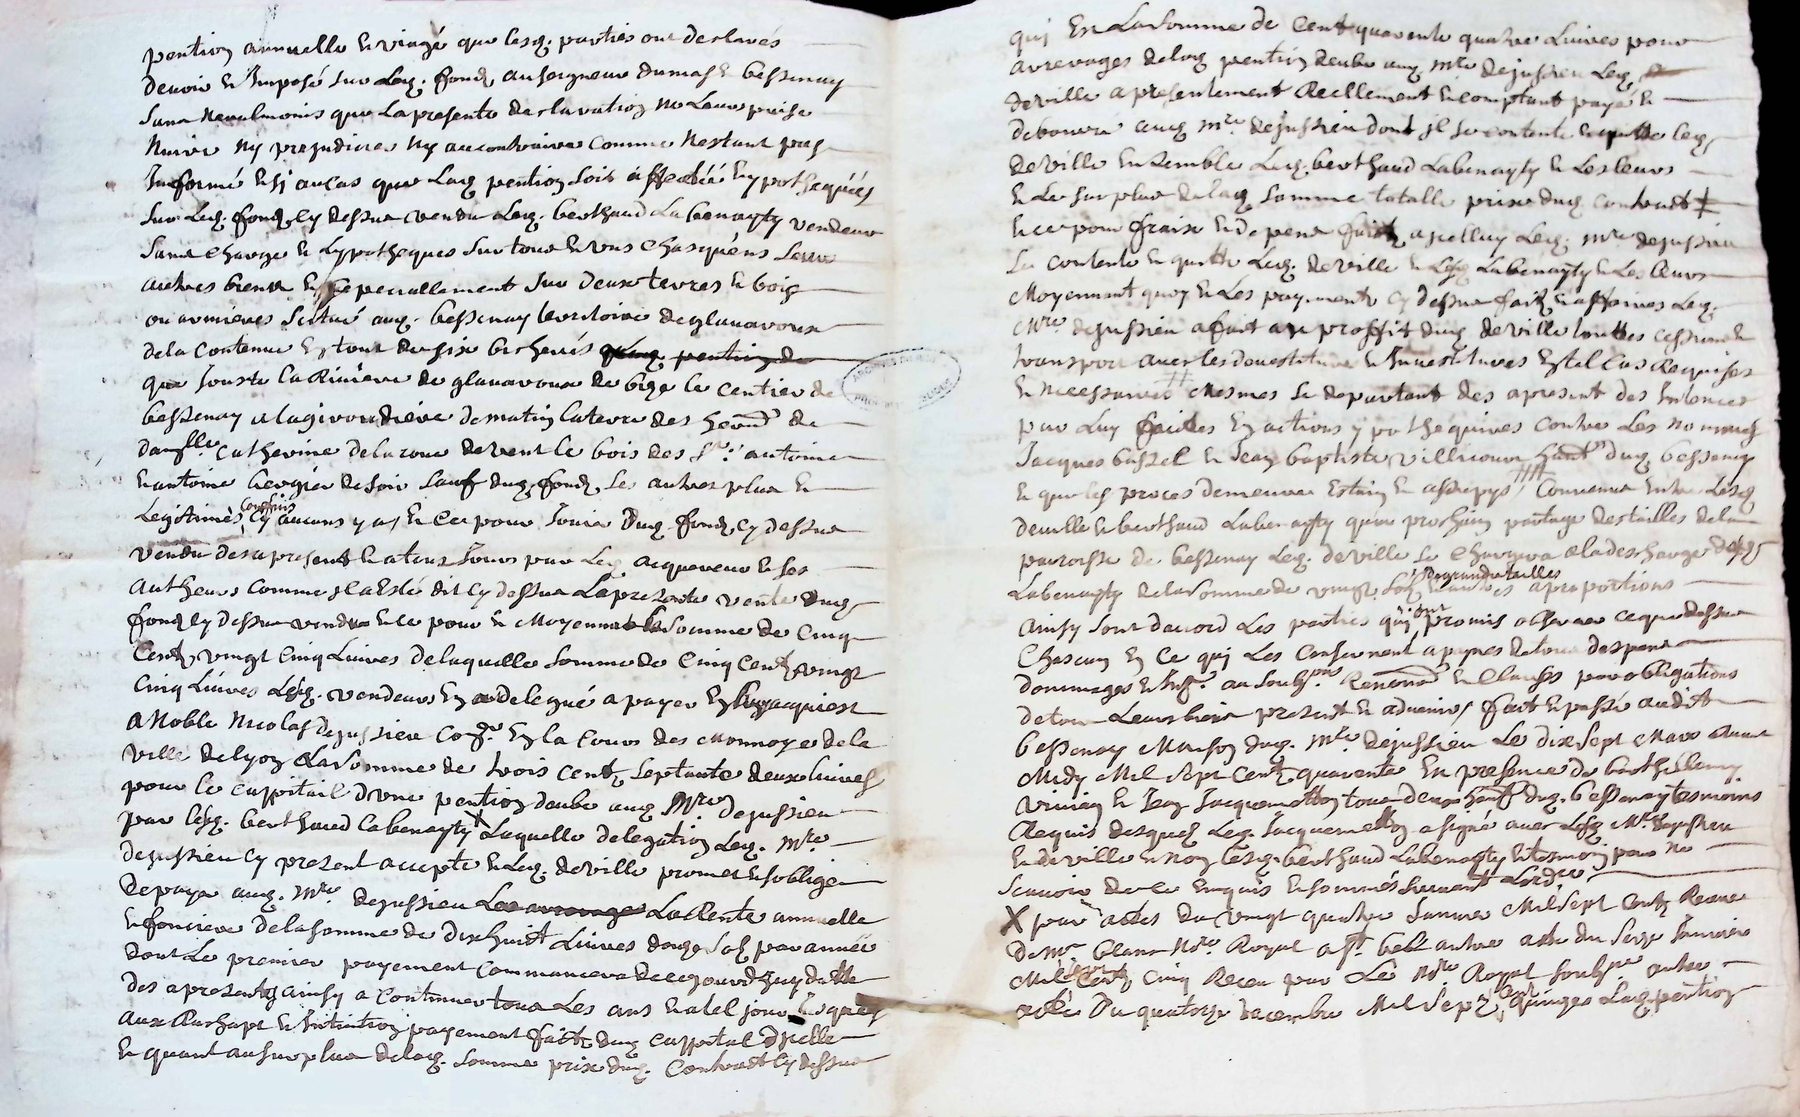 pention annuelle et viagé que lesq. parties ont desclarés
devoir et Imposé sur Leq. fondz au seigneur dumas et bessenay
sans neaulmoins que La presente desclaration ne Leur puisse
Nuire Ny prejudicier Ny au contraire comme Nestant pas
Informé Et sj au cas que Laq pention soit affectée Et ypothequées
sur Leq. fondz cy dessus vendu Leq. berthaud Labenayty vendeur
sans charge et hypotheques sur tous et uns chasquens Leurs
autres biens Et specialement sur deux terres et bois
ou armieres scitué auq. bessenay territoire de glanavoux
de la Contenue En tout de six bicherés
que Jouxte la Riviere de glanavoux de bize le centier de
bessenay a la givoudiere de matin la terre des her. de
dam.lle Catherine de la roue de vent le bois des Sr. antoine
et antoine de soir sauf duq. fondz, ses autres plus et
Legitimes confins sy aucuns y a, Et ce pour Jouir duq. fondz cy dessus
vendu des a present et a tous Jours par Leq. acquereur et ses
autheurs comme jl a Esté dit cy dessus La presente vente duq
fondz cy dessus vendus et ce pour et Moyennant la somme de Cinq
Centz vingt Cinq Livres de laquelle somme de Cinq Centz vingt
Cinq Livres Lesq. vendeurs En ont delegué a payer En l'acquiest
a Noble Nicolas dejussieu Con.er En la Cour des Monnoyes de la
ville de Lyon La somme de trois Centz septante deux Livres
pour le cappitail d'une pention deube auq Mre dejussieu
par Lesq. berthaud Labenayty X Laquelle delegation Leq. Mre
dejussieu cy present accepte et Leq. deville promet Et s'oblige
de paye auq. Mre dejussieu Les arrerages La Rente annuelle
et fonciere de la somme de dix huict Livres douze solz par année
dont Le premier payement commancera de ce jourd'huy datte
des apresent ainsy a continuer tous Les ans et a tel jour jusques
aux Rachapt et Extintion payement faits duq cappital d'jcelle
Et quant au surplus de laq. somme prix duq. Contract cy dessus
qui Est La somme de Cent quarente quatre Livres pour
arrerages de laq pention deube auq Mre dejussieu Leq
deville a presentement Reellement et comptant payé et
debource auq Mre dejussieu dont jl se contente et quitte Leq
deville Ensemble Leq. berthaud Labenayty et Les leurs
et Le surplus de laq somme totalle prix duq contract ‡
Et ce pour fraix et depens faitz apelluy Leq. Mre dejussieu
se contente et quitte Leq. deville et Lesq Labenayty et Les leurs
Moyennant quoy et Les payements cy dessus faitz Leq.
Mre dejussieu a fait au proffit duq deville touttes cessions et
transport avec les devestitures et Investitures En tel cas Requises
et Necessaires Mesmes se departant des apresent des Instences
par Luy faictes En actions ypothequaires contre Les nommés
Jacques et Jean baptiste villecour duq. bessenay
et que les proces demeurer Estain et assoupys, Convenu Entre Lesq
deville et berthaud Labenayty qu'au prochain partage des tailles de la
paroisse de bessenay Leq. deville se chargera a la descharge desq
Labenayty de la somme de vingt solz de grandes tailles Et autres a proportions
Ainsy sont d'acord Les parties qui ont promis observer ce que dessus
Chascun En Ce qui Les Consernent a paynes de tous despens
Dommages et Int. au soubz.nés Renonc. Et Clauses par obligations
de tous Leurs biens present et advenirs, fait et passé audit
bessenay Maison duq. Mre dejussieu Le dix sept Mars avant
Midy Mil sept centz quarente En presence de barthellemy
vivien et Jean Jacquemetton tous deux hab. duq. bessenay tesmoins
Requis desquelz Leq. Jacquemetton a signé avec Lesq Mre dejussieu
et deville et non Lesq. berthaud Labenayty Et tesmoin pour ne
scavoir de ce Enquis Et sommés suivant L'ordce
X par actes du vingt quatre Janvier Mil sept centz Receu
de Mr. Clans Nore Royal autre acte du seize Janvier
Mil sept centz cinq Receu par Le Nore Royal soubz.né autre
acte Du quatorze decembre Mil sept cent quinze Laq pention